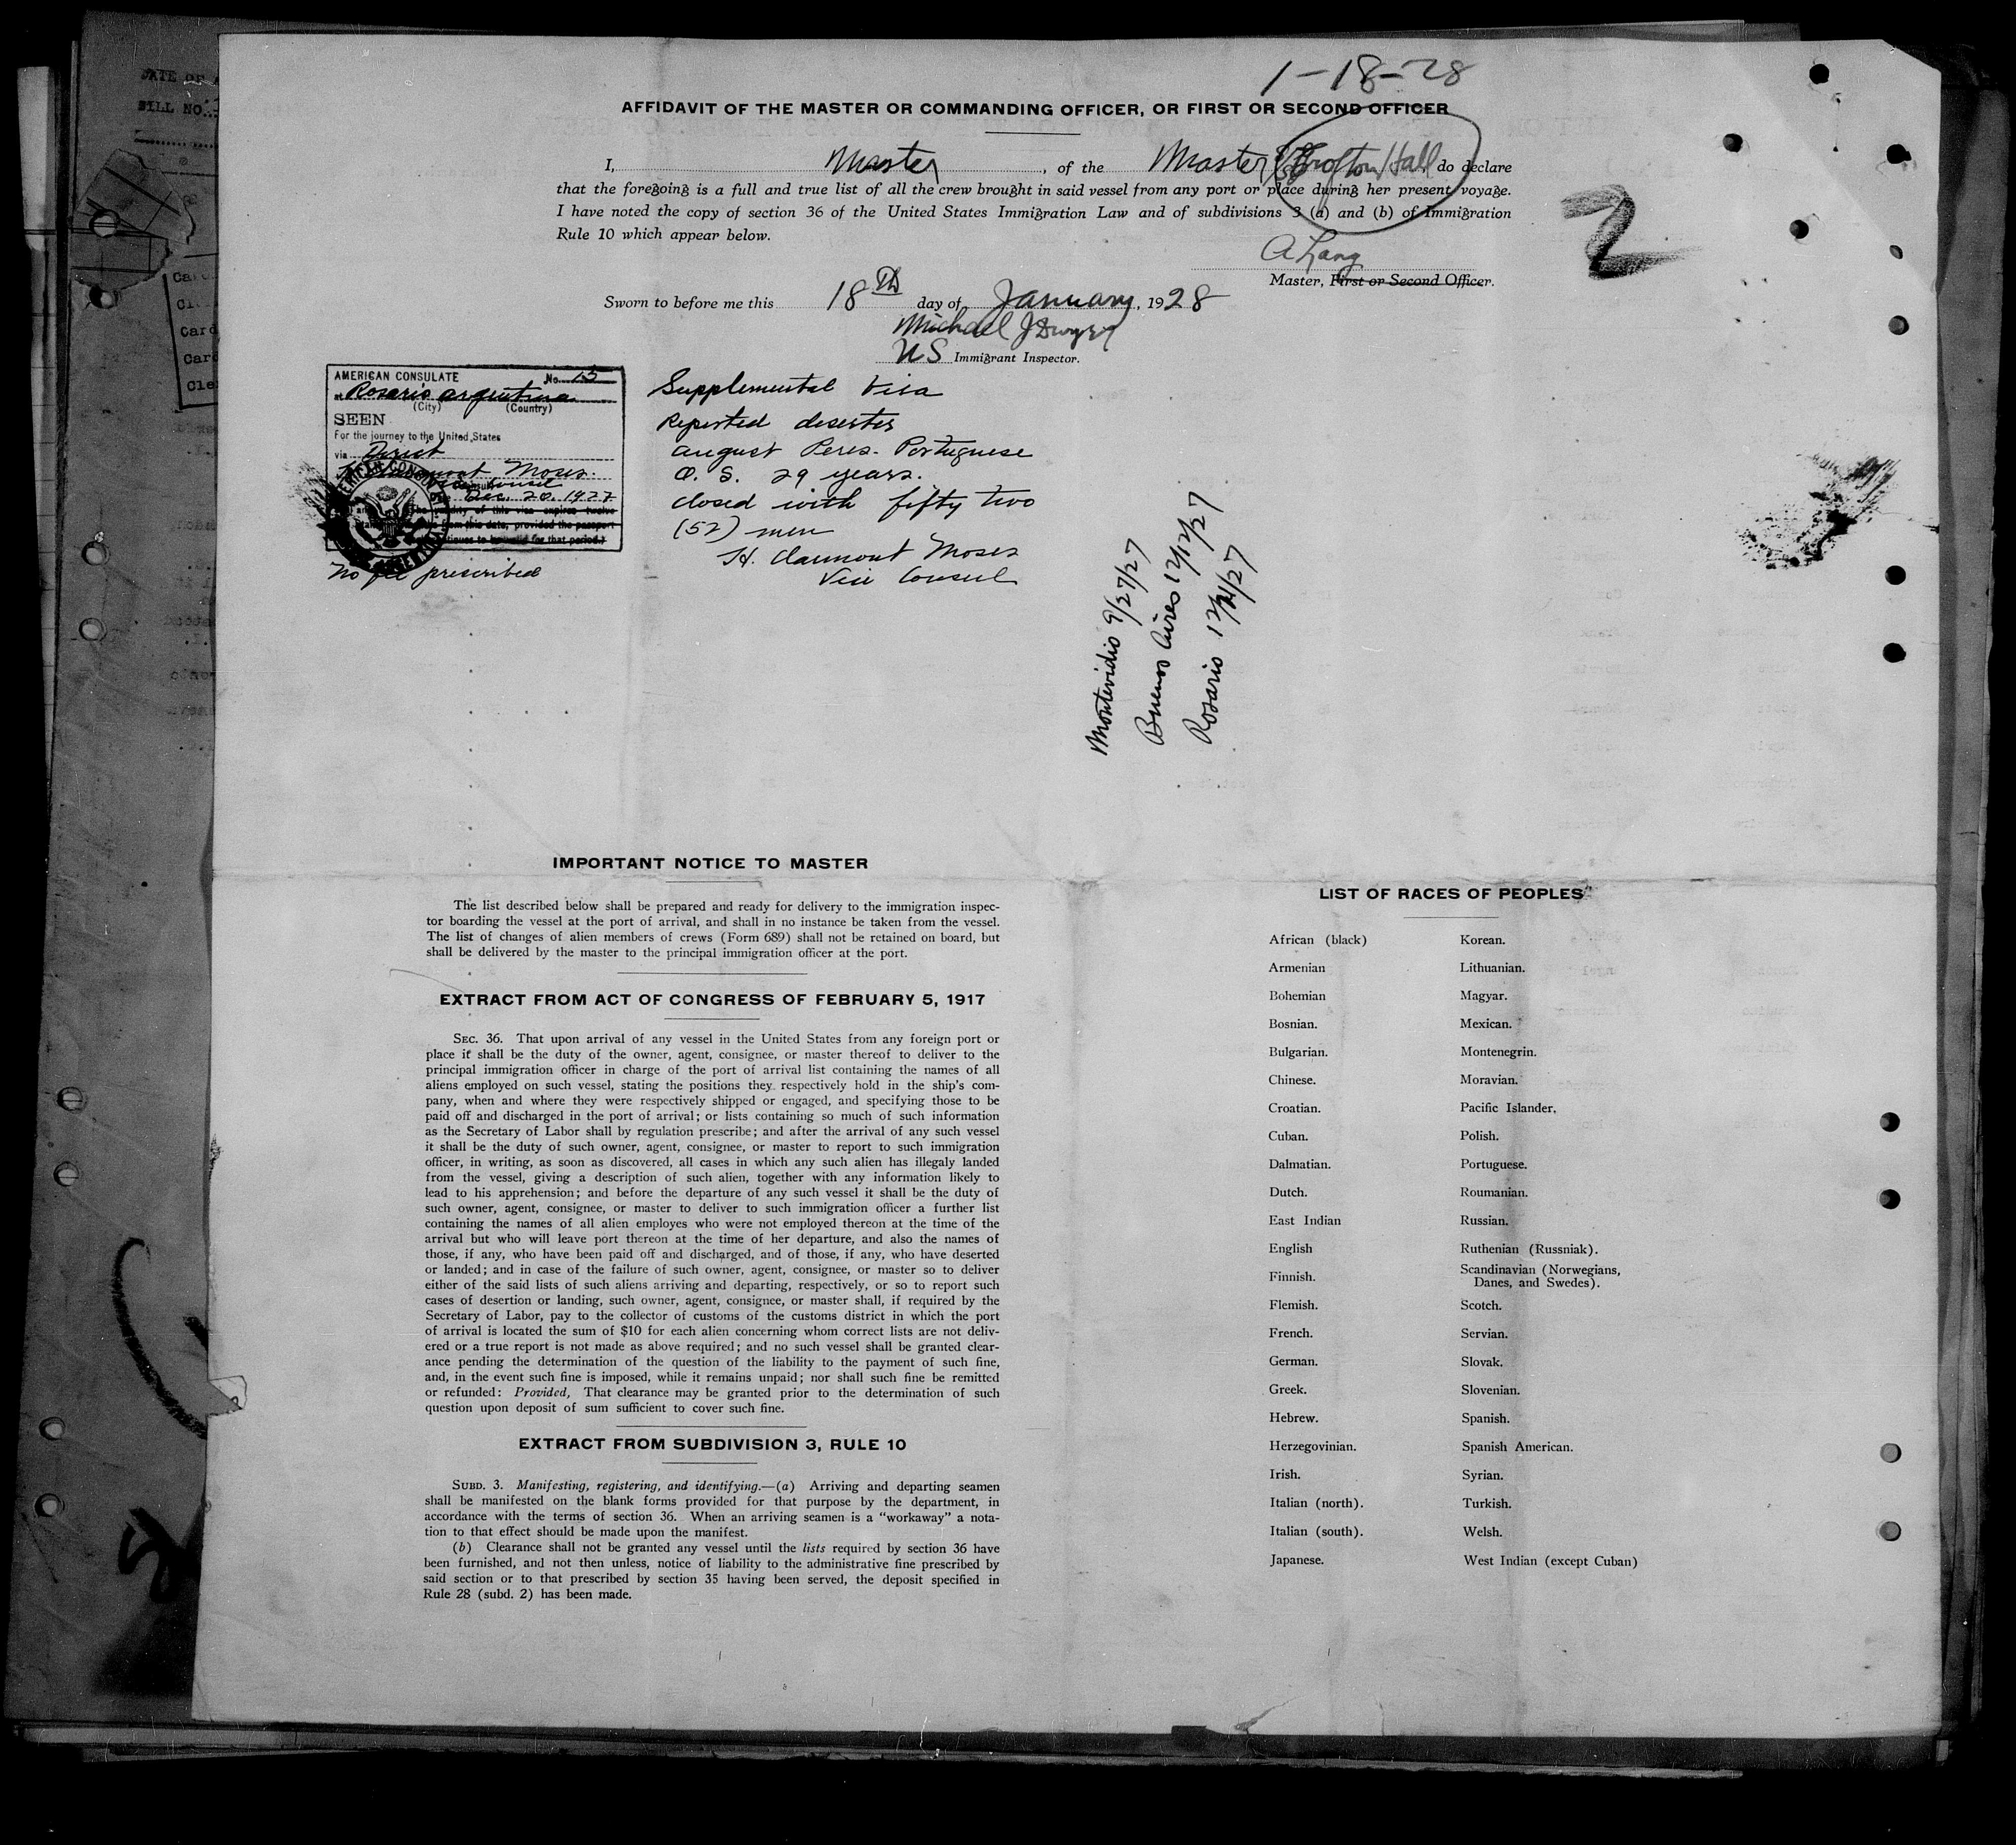 DATE OF
BILL NO.
1-18-28
AFFIDAVIT OF THE MASTER OR COMMANDING OFFICER, OR FIRST OR SECOND OFFICER
I, Master, of the Master Hall do declare
that the foregoing is a full and true list of all the crew brought in said vessel from any port or place during her present voyage.
I have noted the copy of section 36 of the United States Immigration Law and of subdivisions 3 (a) and (b) of Immigration
Rule 10 which appear below.
2
A Lang
Master, First or Second Officer.
Sworn to before me this 18th day of January, 1928
Michael J Dwyer
US Immigrant Inspector.
AMERICAN CONSULATE No. 15
at Rosario Argentina
(City) (Country)
SEEN
For the journey to the United States
via Direct
Moses.
Dec. 20. 1927
The validity of this visa expires twelve
from this date, provided the passport
continues to be valid for that period.
No fee prescribed
Supplemental Visa
Reported deserter
August Peres. Portuguese
O. S. 29 years.
Closed with fifty two
(52) men
H. Claremont Moses
Vice Consul
Montevidio 9/27/27
Buenos Aires 12/12/27
Rosario 12/21/27
IMPORTANT NOTICE TO MASTER
The list described below shall be prepared and ready for delivery to the immigration inspec-
tor boarding the vessel at the port of arrival, and shall in no instance be taken from the vessel.
The list of changes of alien members of crews (Form 689) shall not be retained on board, but
shall be delivered by the master to the principal immigration officer at the port.
EXTRACT FROM ACT OF CONGRESS OF FEBRUARY 5, 1917
SEC. 36. That upon arrival of any vessel in the United States from any foreign port or
place it shall be the duty of the owner, agent, consignee, or master thereof to deliver to the
principal immigration officer in charge of the port of arrival list containing the names of all
aliens employed on such vessel, stating the positions they respectively hold in the ship's com-
pany, when and where they were respectively shipped or engaged, and specifying those to be
paid off and discharged in the port of arrival; or lists containing so much of such information
as the Secretary of Labor shall by regulation prescribe; and after the arrival of any such vessel
it shall be the duty of such owner, agent, consignee, or master to report to such immigration
officer, in writing, as soon as discovered, all cases in which any such alien has illegaly landed
from the vessel, giving a description of such alien, together with any information likely to
lead to his apprehension; and before the departure of any such vessel it shall be the duty of
such owner, agent, consignee, or master to deliver to such immigration officer a further list
containing the names of all alien employes who were not employed thereon at the time of the
arrival but who will leave port thereon at the time of her departure, and also the names of
those, if any, who have been paid off and discharged, and of those, if any, who have deserted
or landed; and in case of the failure of such owner, agent, consignee, or master so to deliver
either of the said lists of such aliens arriving and departing, respectively, or so to report such
cases of desertion or landing, such owner, agent, consignee, or master shall, if required by the
Secretary of Labor, pay to the collector of customs of the customs district in which the port
of arrival is located the sum of $10 for each alien concerning whom correct lists are not deliv-
ered or a true report is not made as above required; and no such vessel shall be granted clear-
ance pending the determination of the question of the liability to the payment of such fine,
and, in the event such fine is imposed, while it remains unpaid; nor shall such fine be remitted
or refunded: Provided, That clearance may be granted prior to the determination of such
question upon deposit of sum sufficient to cover such fine.
EXTRACT FROM SUBDIVISION 3, RULE 10
SUBD. 3. Manifesting, registering, and identifying.—(a) Arriving and departing seamen
shall be manifested on the blank forms provided for that purpose by the department, in
accordance with the terms of section 36. When an arriving seamen is a "workaway" a nota-
tion to that effect should be made upon the manifest.
(b) Clearance shall not be granted any vessel until the lists required by section 36 have
been furnished, and not then unless, notice of liability to the administrative fine prescribed by
said section or to that prescribed by section 35 having been served, the deposit specified in
Rule 28 (subd. 2) has been made.
LIST OF RACES OF PEOPLES
African (black) Korean.
Armenian Lithuanian.
Bohemian Magyar.
Bosnian. Mexican.
Bulgarian. Montenegrin.
Chinese. Moravian.
Croatian. Pacific Islander.
Cuban. Polish.
Dalmatian. Portuguese.
Dutch. Roumanian.
East Indian Russian.
English Ruthenian (Russniak).
Finnish. Scandinavian (Norwegians,
Danes, and Swedes).
Flemish. Scotch.
French. Servian.
German. Slovak.
Greek. Slovenian.
Hebrew. Spanish.
Herzegovinian. Spanish American.
Irish. Syrian.
Italian (north). Turkish.
Italian (south). Welsh.
Japanese. West Indian (except Cuban)